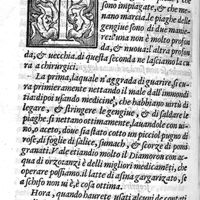 T
sono impiagate, & che me-
nano marcia. le piaghe delle
gengiue sono di due manie-
re: l'una non è molto profon
da, & nuoua: l'altra profon
da, & vecchia. di questa seconda ne lasciamo la cu
ra a chirurgici.
La prima, laquale n'aggrada di guarire, si cu
ra primieramente nettando il male dall'immundi
tia: dipoi usando medicine, che habbiano virtù di
legare, & stringere le gengiue, & di saldare le
piaghe. si nettano ottimamente, lauandole con ui-
no, ò aceto, doue sia stato cotto un picciol pugno di
rose, di foglie di salice, sumach, & scorze di pomi
granati. Vale etiandio molto il Diamoron con ac
qua di orzo: anzi è delli migliori medicamēti, che
operare possiamo. il latte di asina gargarizato, se
a schifo non ui è, è cosa ottima.
Hora, quando haurete usati alcuni de contati